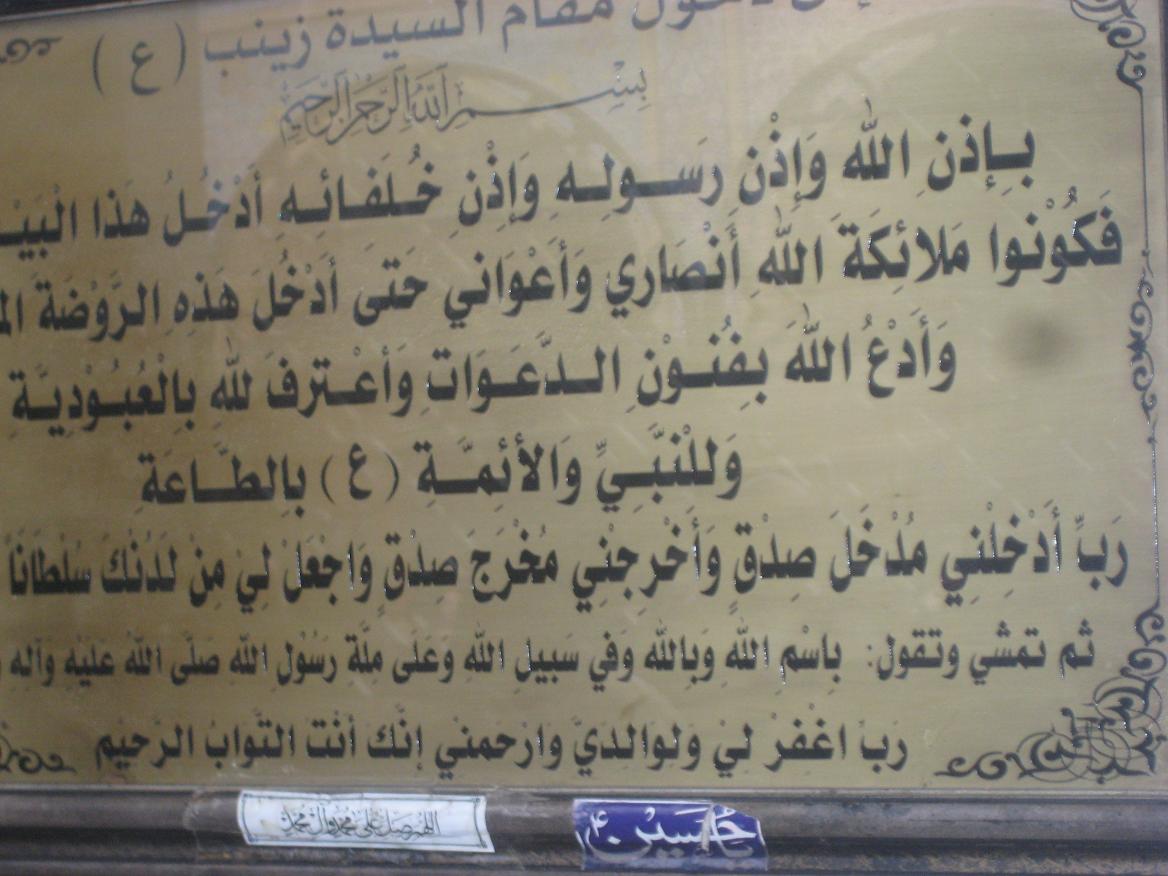 دخول مقام السيدة زينب (ع)
بِسْمِ اللهِ الرَّحْمنِ الرَّحِيمِ
بِإِذنِ اللهِ وَإِذْنِ رَسولِهِ وَإِذْنِ خُلَفَائِهِ أَدْخُلُ هَذا
فَكُوْنوا مَلائِكَةَ اللهِ أَنْصَاري وَأَعْوَاني حَتى أَدْخُلَ هَذِهِ الرَّوْضَةَ
وَأَدْعُ اللهَ بِفُنُوْنِ الدَّعَوَاتِ وَأَعْتَرِفَ للهِ بِالْعُبُوْدِيَّةِ
وَلِلْنَبَّيِّ وَالأَئِمَّةِ (ع) بِالِطَّاعَةِ
رَبِّ أَدْخِلْنِي مُدْخَلَ صِدْقٍ وَأَخْرِجنِي مُخْرَجَ صِدْقٍ وَاجْعَلْ لِيْ مِنْ لَدُنْكَ سُلْطَانَاً
ثم تمشي وتقول: بِاسْمِ اللهِ وَبِاللهِ وَفي سَبيلِ اللهِ وَعَلى مِلَّةِ رَسُوْلِ اللهِ صَلَّى اللهُ عَلَيْهِ وَآلِهِ
رَبِّ اغْفِرْ لِيْ وَلِوَالِدَيَّ وَارْحَمنِيْ إِنَّكَ أَنْتَ التَّوَابُ الرَّحِيْم
اللهم صل على محمد وآل محمد